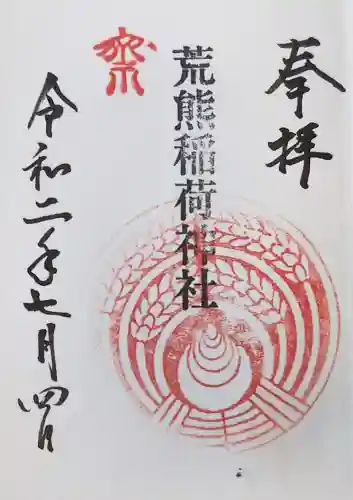 奉拝
荒熊稲荷神社
令和二年七月四日